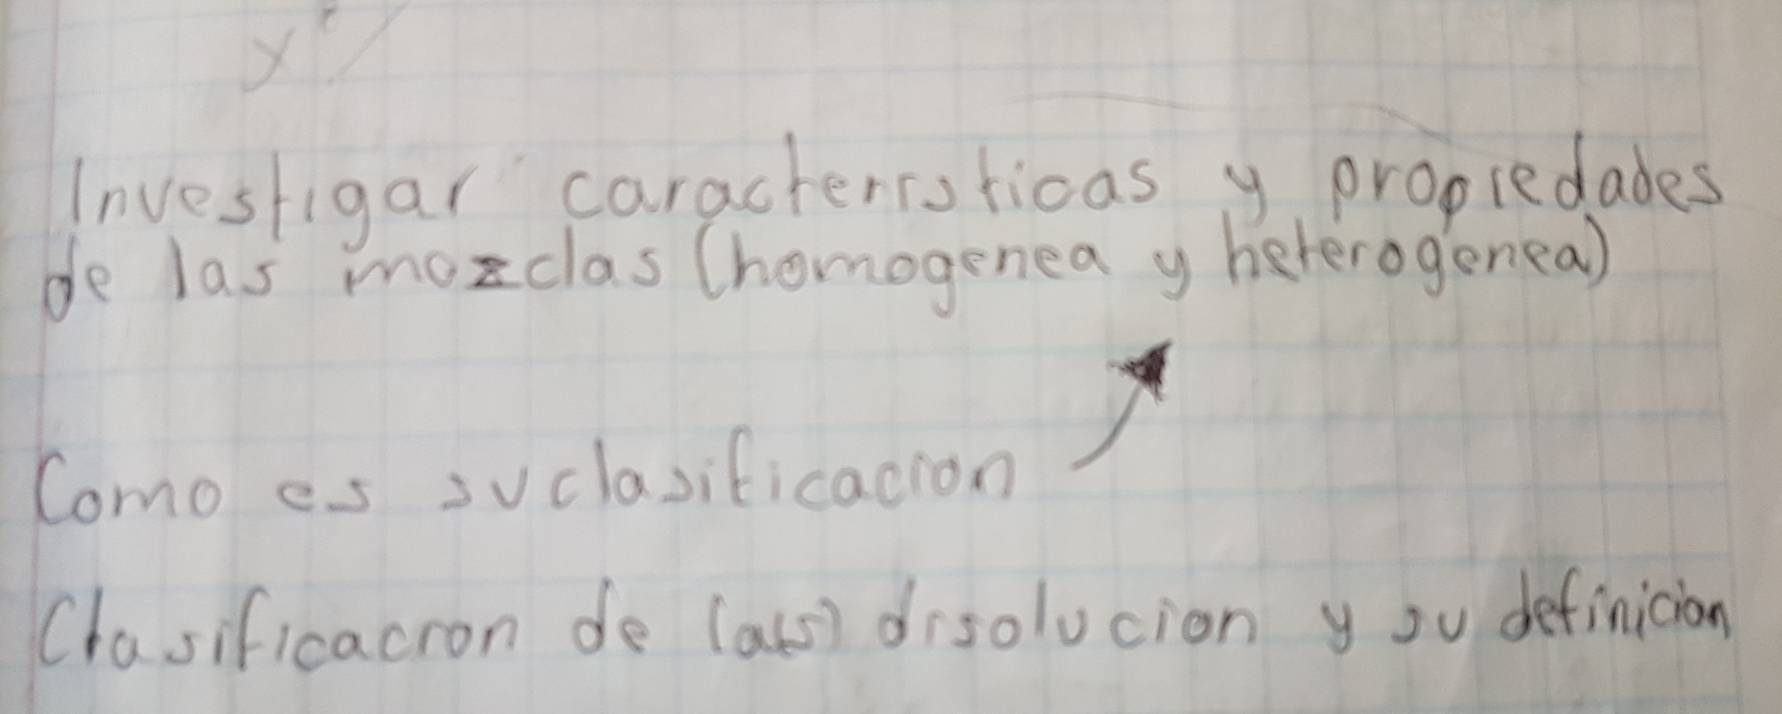 Investigar características y propiedades
de las mezclas (homogenea y heterogenea)
Como es su clasificacion
Clasificacion de la(s) disolucion y su definicion